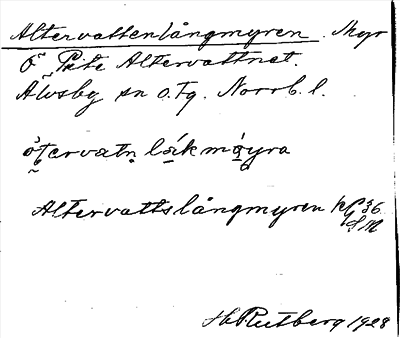 Altervattenlångmyren. Myr
Ö Pite Altervattnet.
Älvsby sn o. tg. Norrb. l.
lǻkmýyra
Altervattslångmyren KG 36
HRutberg 1928